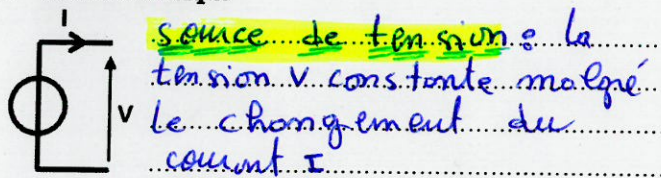 I
source de tension : la
tension V constante malgré
V
le changement du
courant I